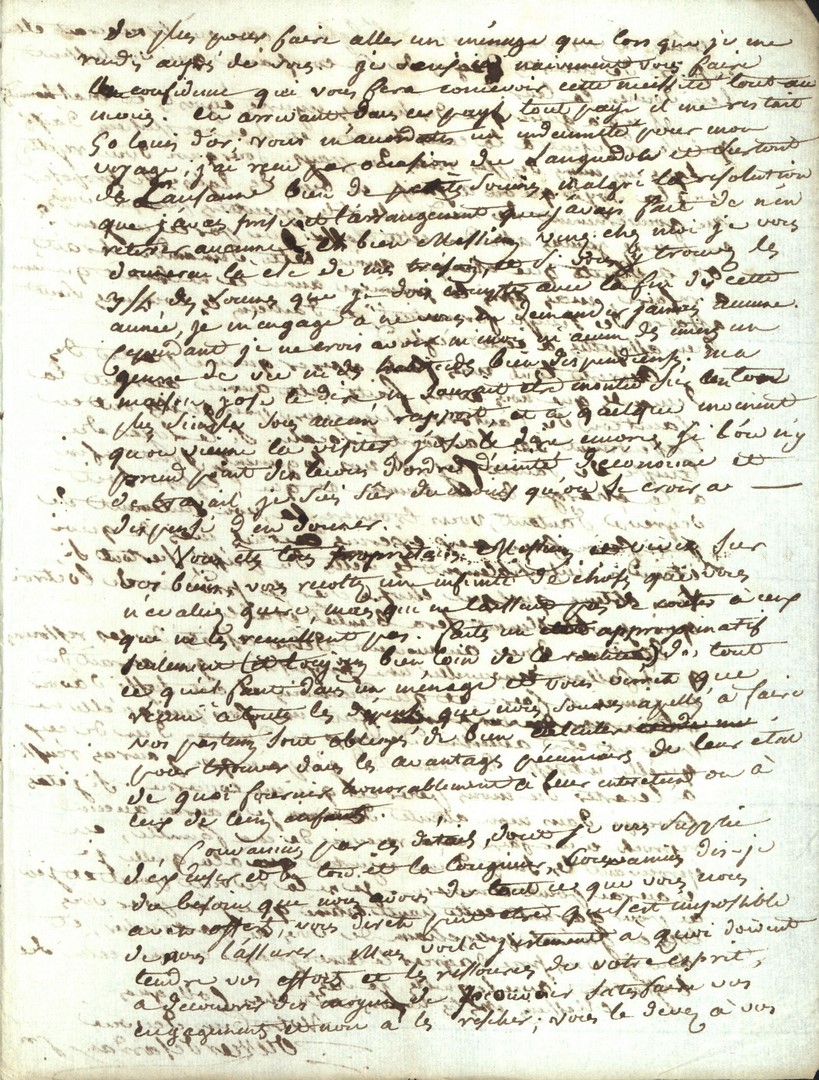 des plus pour faire aller un ménage que lors que je me
rendis auprès de vous. je vais naivement vous faire
une confidence qui vous fera concevoir cette necessité tout au
moins. En arrivant dans ce pays, tout payé il me restait
50 louis d'or; vous m'accordates un indemnité pour mon
voyage; j'ai reçu par occasion du Languedoc et surtout
de Lausanne bien de petits secours, malgré la résolution
que j'avais prise et l'arrangement que j'avais fait de n'en
retirer aucun. Eh bien Messieurs, venez chez moi je vous
donnerai la clé de mes trésors, et si vous y trouvez les
3/4 des sommes que je dois compter avec la fin de cette
année, je m'engage à ne vous en demander jamais aucune.
Cependant je ne crois avoir ni moi ni aucun des miens un
genre de vie ni des bien dispendieux: ma
maison, j'ose le dire ne saurait être montée sur un ton
plus simple sous aucun rapport et à quelque moment
qu'on vienne la visiter j'ose le dire encore, si l'on n'y
prend point des leçons d'ordre d'unité d'economie et
de travail, je suis sûr du moins qu'on se croira —
dispensé d'en donner.
Vous êtes tous propriétaires Messieurs et vivez sur
vos biens, vous recoltez une infinité de choses que vous
n'evaluez guere, mais qui ne laissent pas de couter à ceux
que ne les recueillent pas. faites un approximatif
seulement (et toujours bien loin de la realité) de tout
ce qu'il faut dans un ménage et vous verrez que
reunit à toutes les dépenses que nous sommes apellés à faire
vos pasteurs sont obligés de bien calculer
pour trouver dans les avantages pécuniaires de leur état
de quoi fournir honorablement à leur entretien ou à
ceux de leurs enfants.
Convaincus par ces détails, dont je vous supplie
d'excuser et le ton et la longueur, convaincus dis-je
du besoin que nous avons de tout ce que vous nous
avez offert, vous direz peut etre qu'il est impossible
de nous l'assurer. Mais voilà justement à quoi doivent
tendre vos efforts et les ressources de votre esprit,
à decouvrir des moyens de pouvoir satisfaire vos
engagements et non à les ; vous le devez à vos